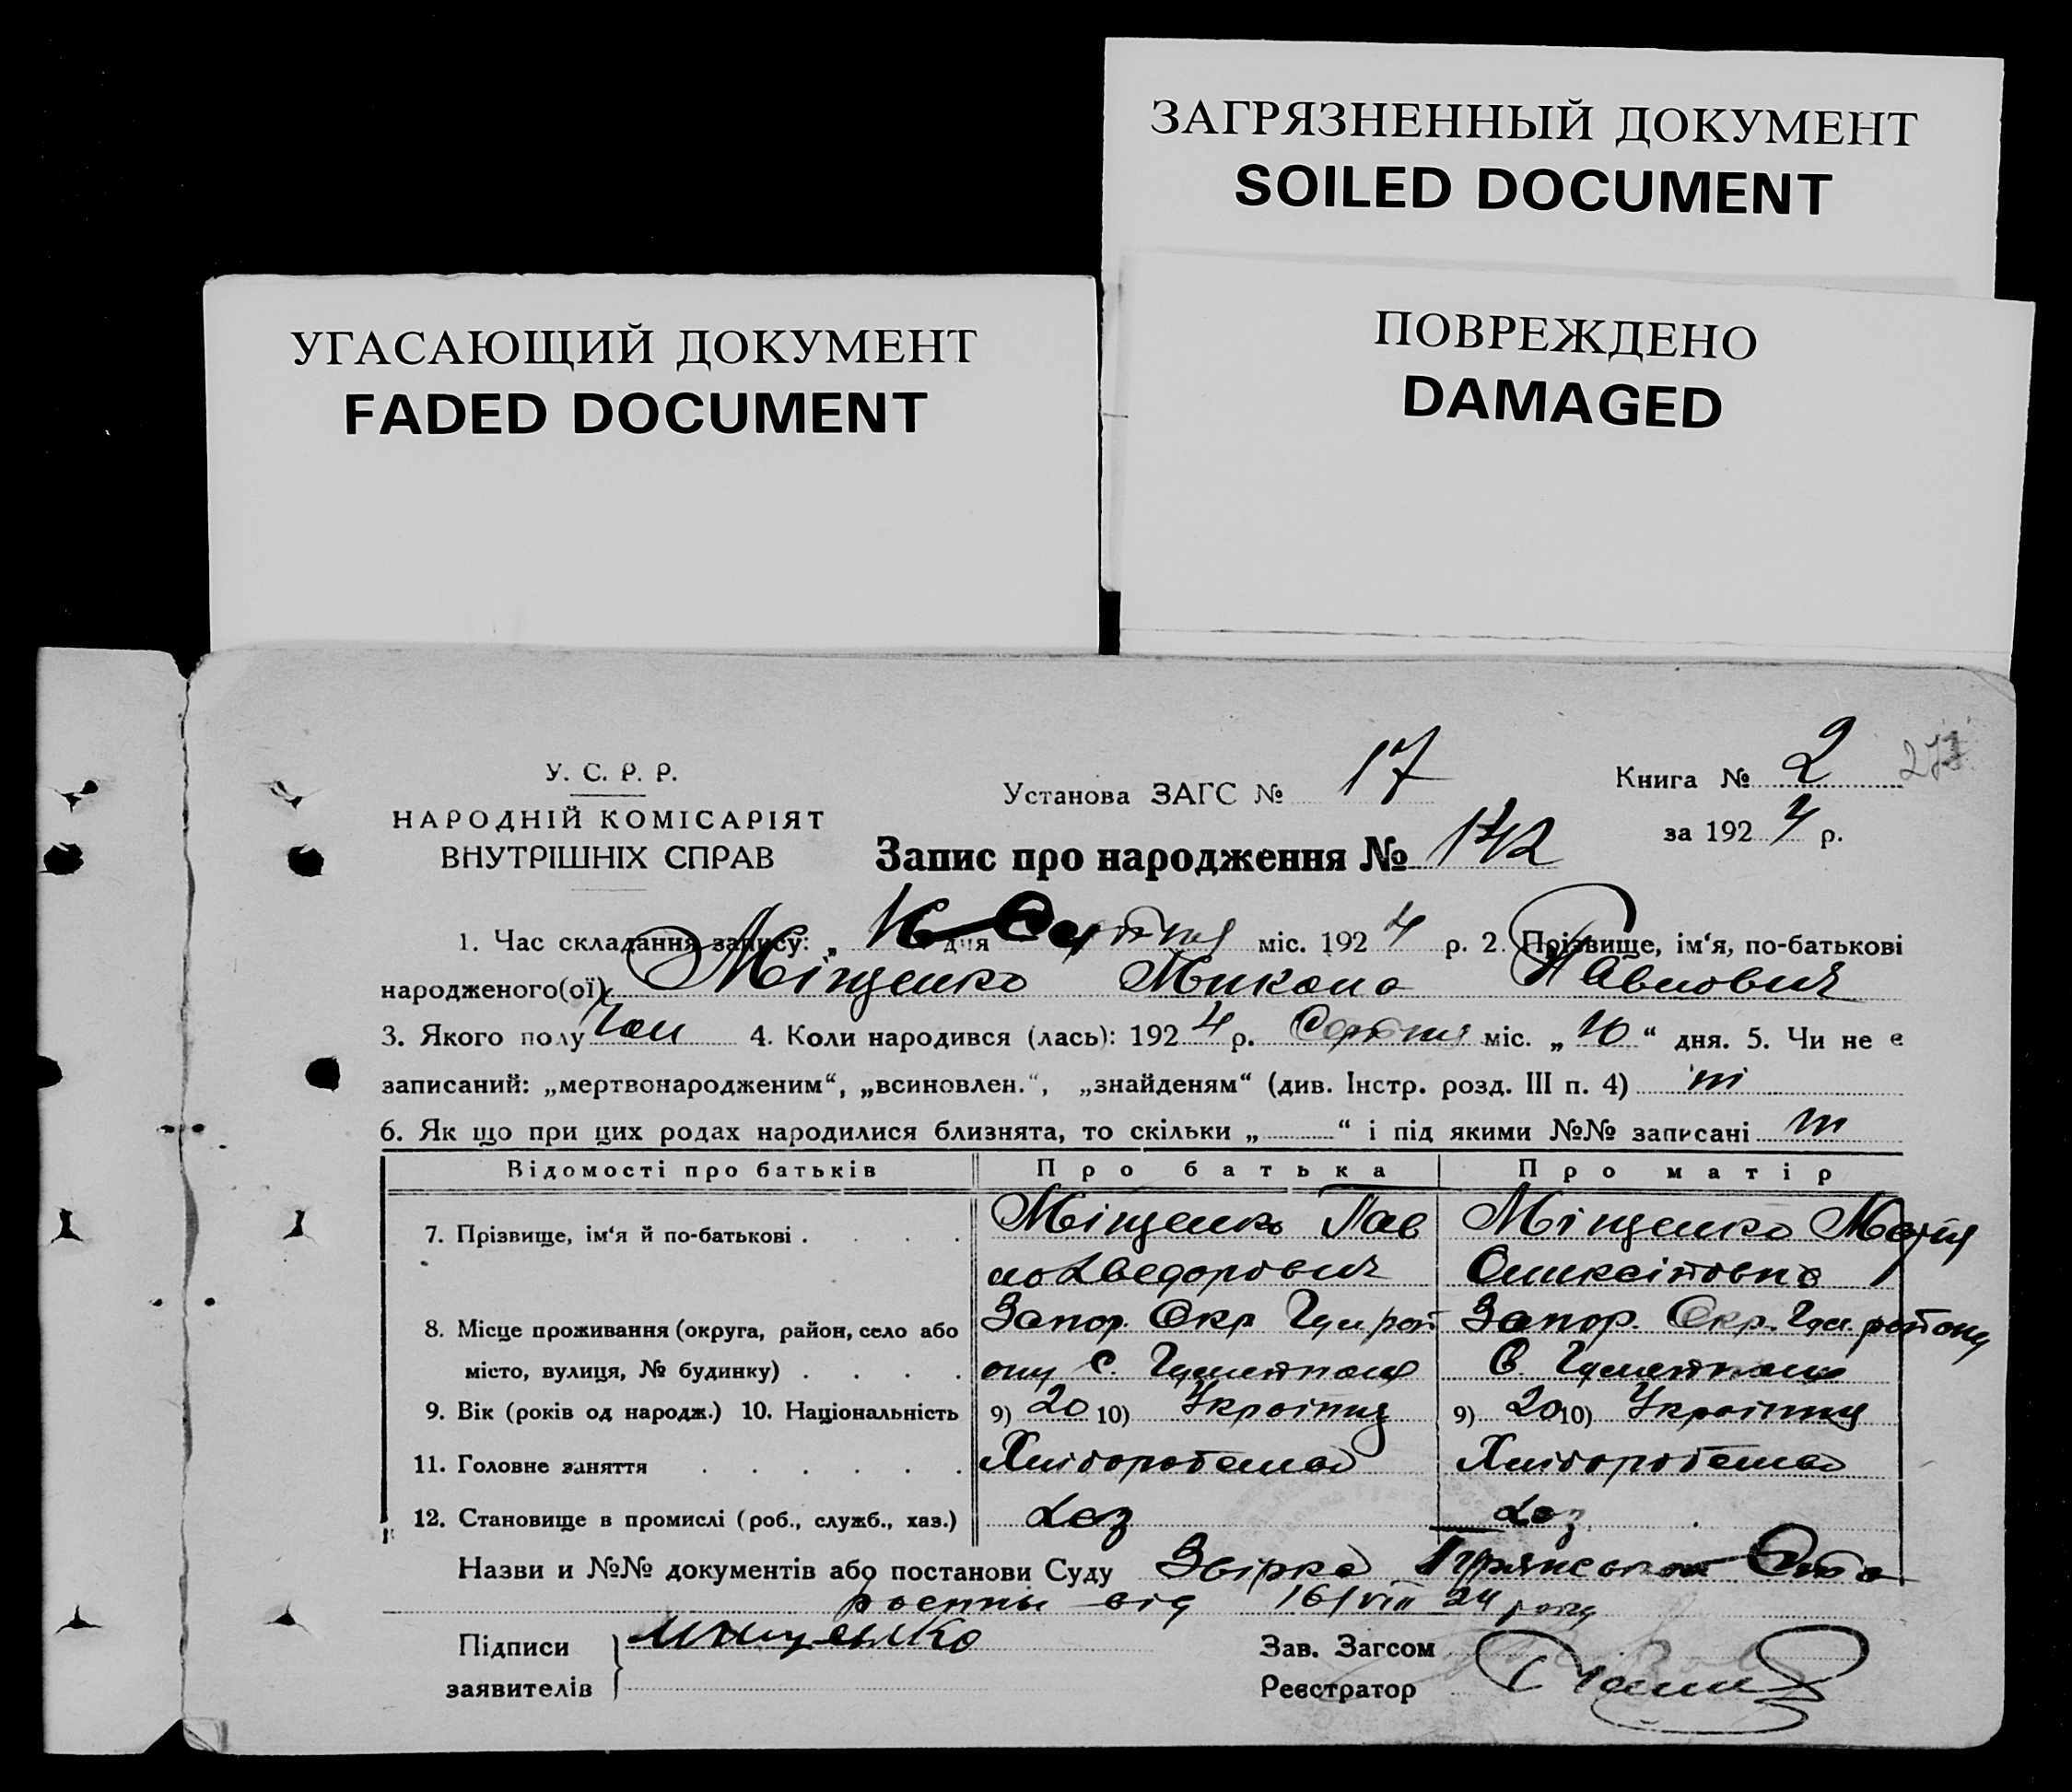 ЗАГРЯЗНЕННЫЙ ДОКУМЕНТ
SOILED DOCUMENT
УГАСАЮЩИЙ ДОКУМЕНТ
FADED DOCUMENT
ПОВРЕЖДЕНО
DAMAGED
У. С. Р. Р.
НАРОДНІЙ КОМІСАРІЯТ
ВНУТРІШНІХ СПРАВ
Установа ЗАГС № 17
Книга № 2
за 1924 р.
Запис про народження № 142
1. Час складання запису: „ 16 дня Серпня міс. 1924 р. 2. Прізвище, ім‘я, по-батькові
народженого(ої) Міщенко Микола Павлович
3. Якого полу чол 4. Коли народився (лась): 1924 р. Серпня міс. „ 10 “ дня. 5. Чи не є
записаний: „мертвонародженим“, „всиновлен.“, „знайденям“ (див. Інстр. розд. III п. 4) ні
6. Як що при цих родах народилися близнята, то скільки „ “ і під якими №№ записані ні
Відомості про батьків Про батька Про матір
7. Прізвище, ім‘я й по-батькові . . . . Міщенко Пав Міщенко Марія
ло Хведорович Олексіївна
8. Місце проживання (округа, район, село або Запор. Окр Гул. рай Запор. Окр. Гул. району
місто, вулиця, № будинку) . . . . ону с. Гуляйполе С. Гуляйполе
9. Вік (років од народж.) 10. Національність 9) 20 10) Україниц 9) 20 10) Україниц
11. Головне заняття . . . . . . Хлібороб Хлібороб
12. Становище в промислі (роб., служб., хаз.) хаз хаз
Назви и №№ документів або постанови Суду
від 16/VIII 24 року
Підписи Мищенко
заявителів
Зав. Загсом
Реєстратор